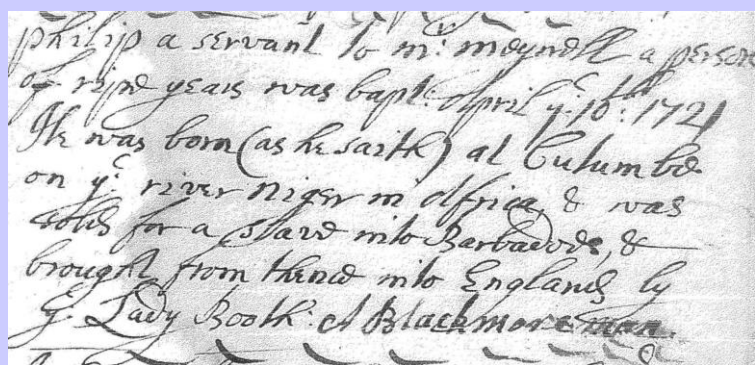 philip a servant to mr: meynell a person
of ripe years was bapt: April ye: 10th: 1721
He was born (as he saith) at Culumbe
on ye: river Niger in Africa, & was
sold for a slave into Barbadoes, &
brought from thence into England by
ye: Lady Booth: A Blackmore man.